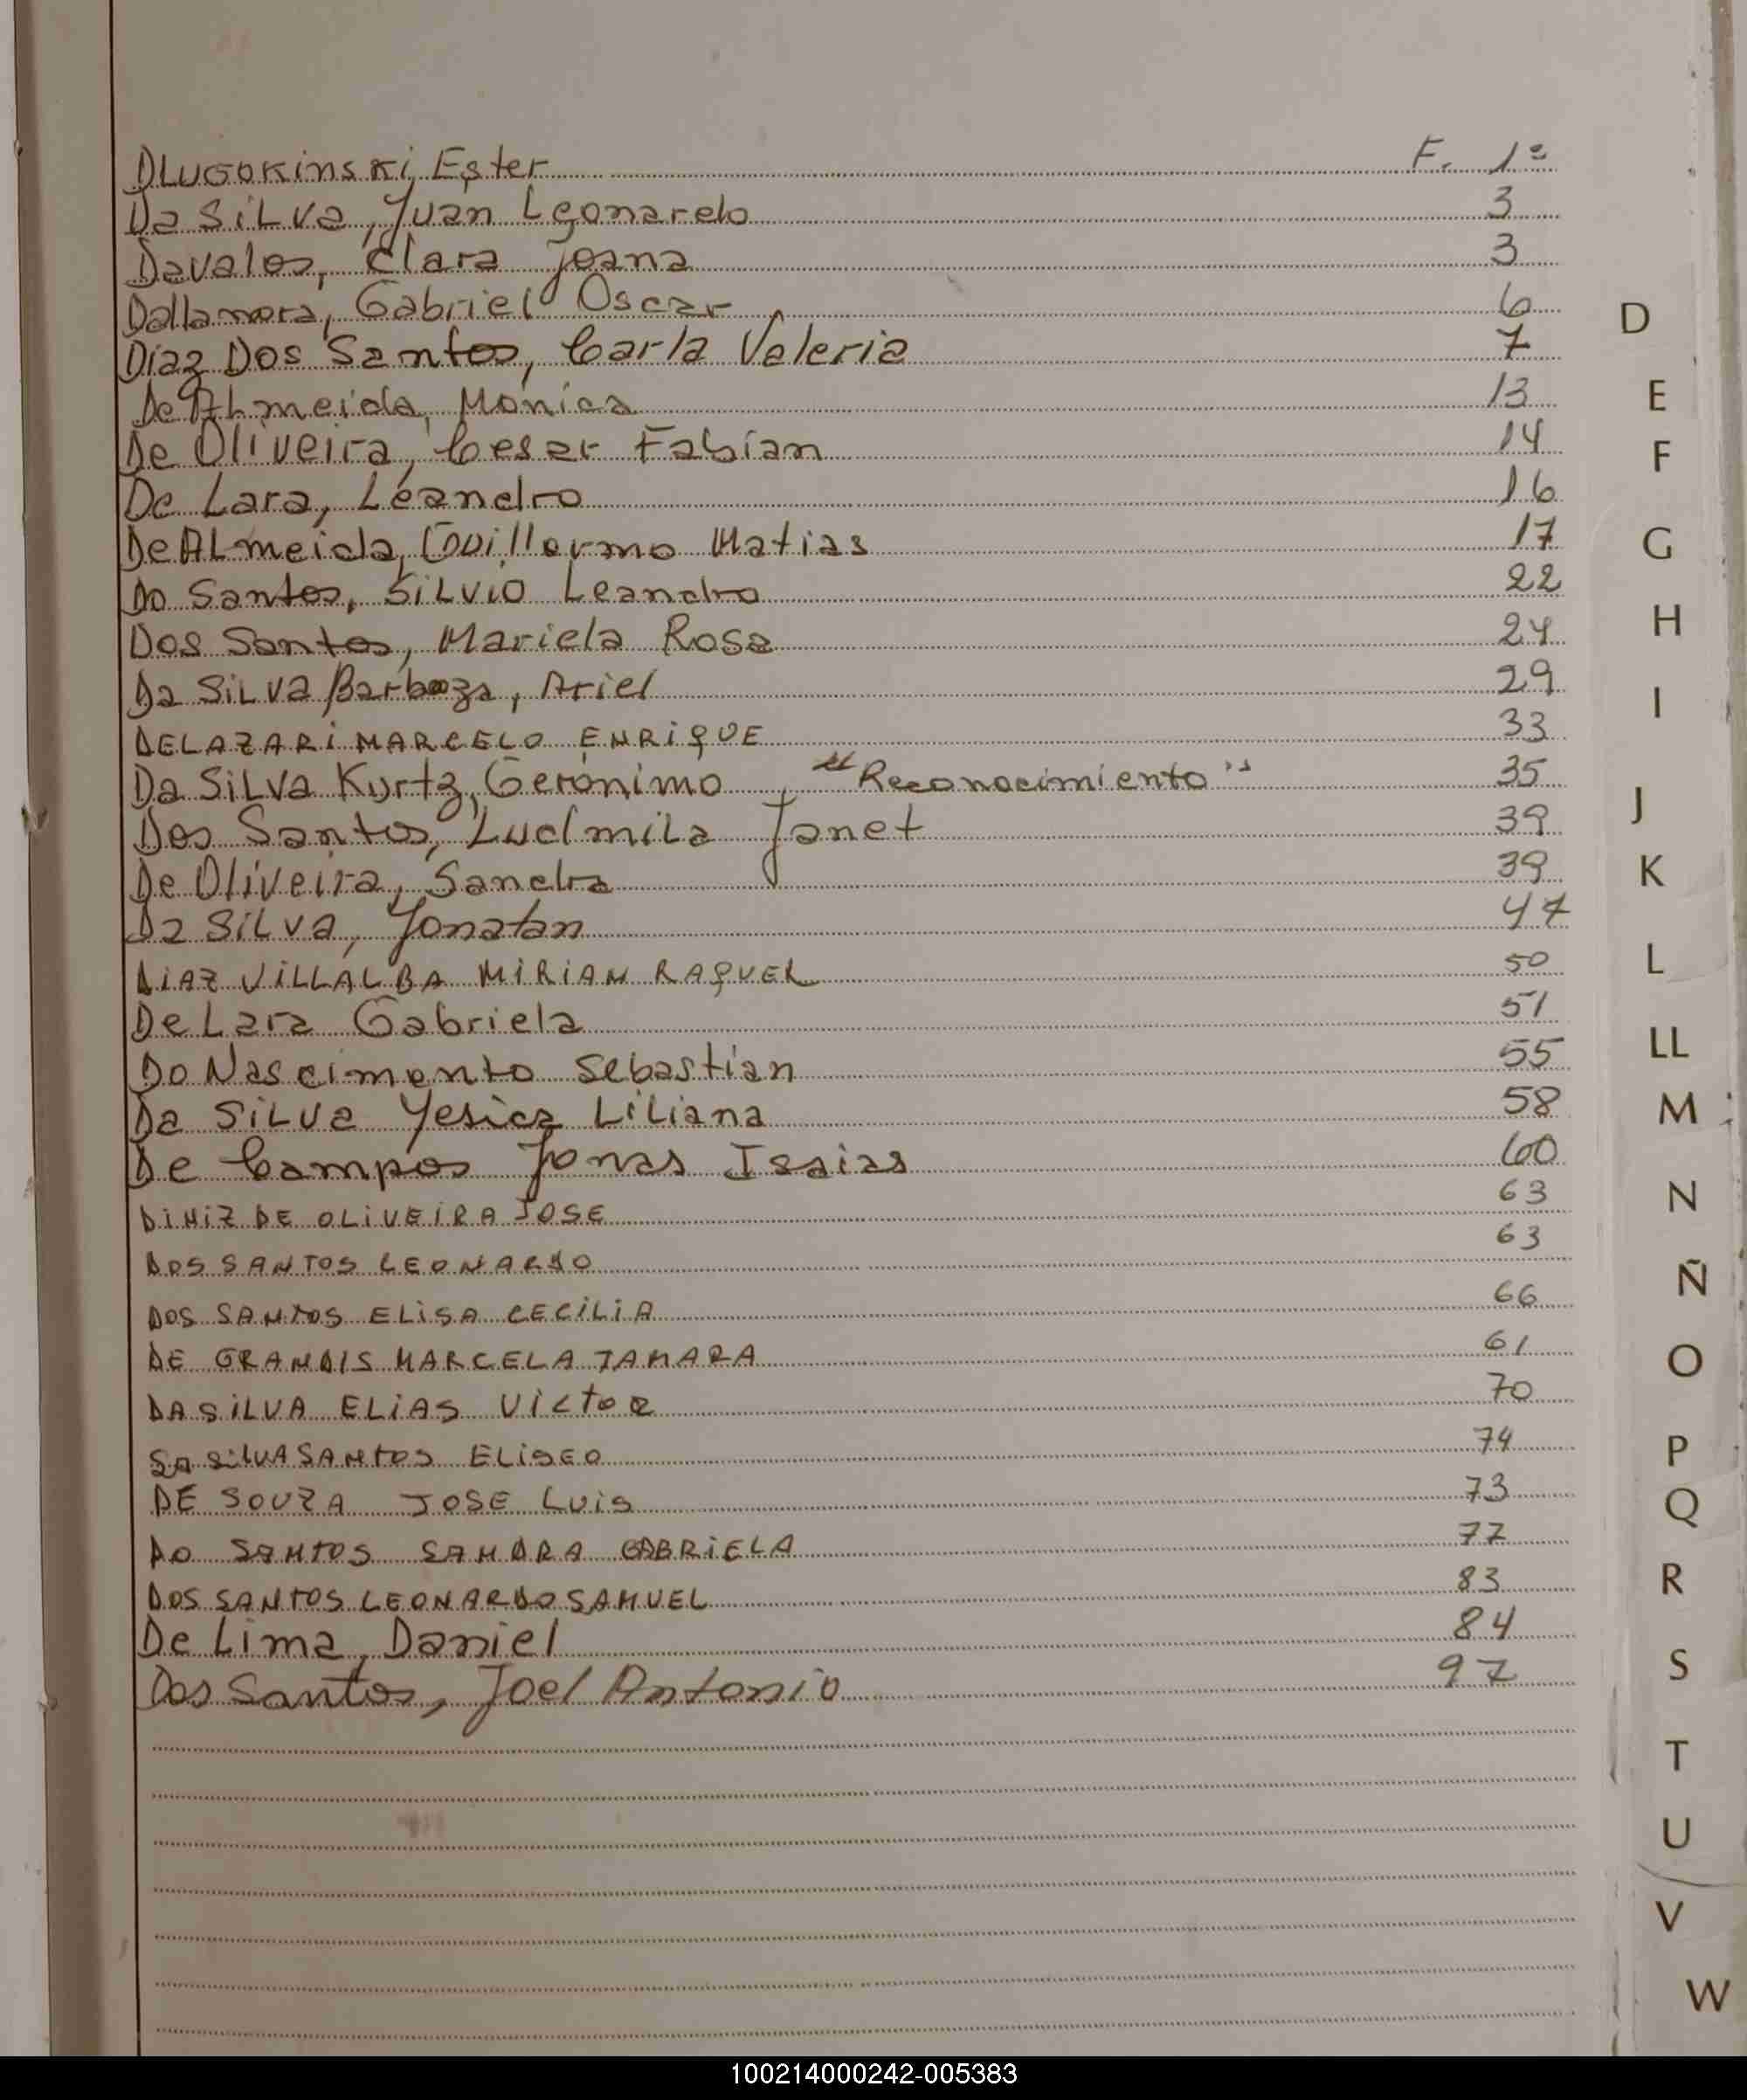 DLUGOKinsKi, Ester F. 1º
Da SiLva, Juan Leonardo 3
Davalos, Clara Joana 3
Dallamora, Gabriel Oscar 6
Díaz Dos Santos, Carla Valeria 7
De ALmeida, Monica 13
De Oliveira, Cesar Fabían 14
De Lara, Leandro 16
De ALmeida, Guillermo Matias 17
Do Santos, SiLvio Leandro 22
Dos Santos, Mariela Rosa 24
Da SiLva Barboza, Ariel 29
DELAZARi MARCELO ENRiQUE 33
Da SiLva Kurtz, Gerónimo "Reconocimiento" 35
Dos Santos, LudmiLa Janet 39
De Oliveira, Sandra 39
Da SiLva, Jonatan 47
DiAZ ViLLALBA MiRiAM RAQUEL 50
De Lara Gabriela 51
Do Nascimento Sebastian 55
Da SiLva Yesica LiLiana 58
De Campos Jonas Isaias 60
DiNiZ DE OLiVEiRA JOSE 63
DOS SANTOS LEONARDO 63
DOS SANTOS ELiSA CECiLiA 66
DE GRANDIS MARCELA TAMARA 61
DA SiLVA ELiAS VicToR 70
SA SiLVA SANTOS ELiSEO 74
DE SOUZA JOSE LUiS 73
DO SANTOS SANDRA GABRiELA 77
DOS SANTOS LEONARDO SAMUEL 83
De Lima, Daniel 84
Dos Santos, Joel Antonio 97
D
E
F
G
H
I
J
K
L
LL
M
N
Ñ
O
P
Q
R
S
T
U
V
W
100214000242-005383